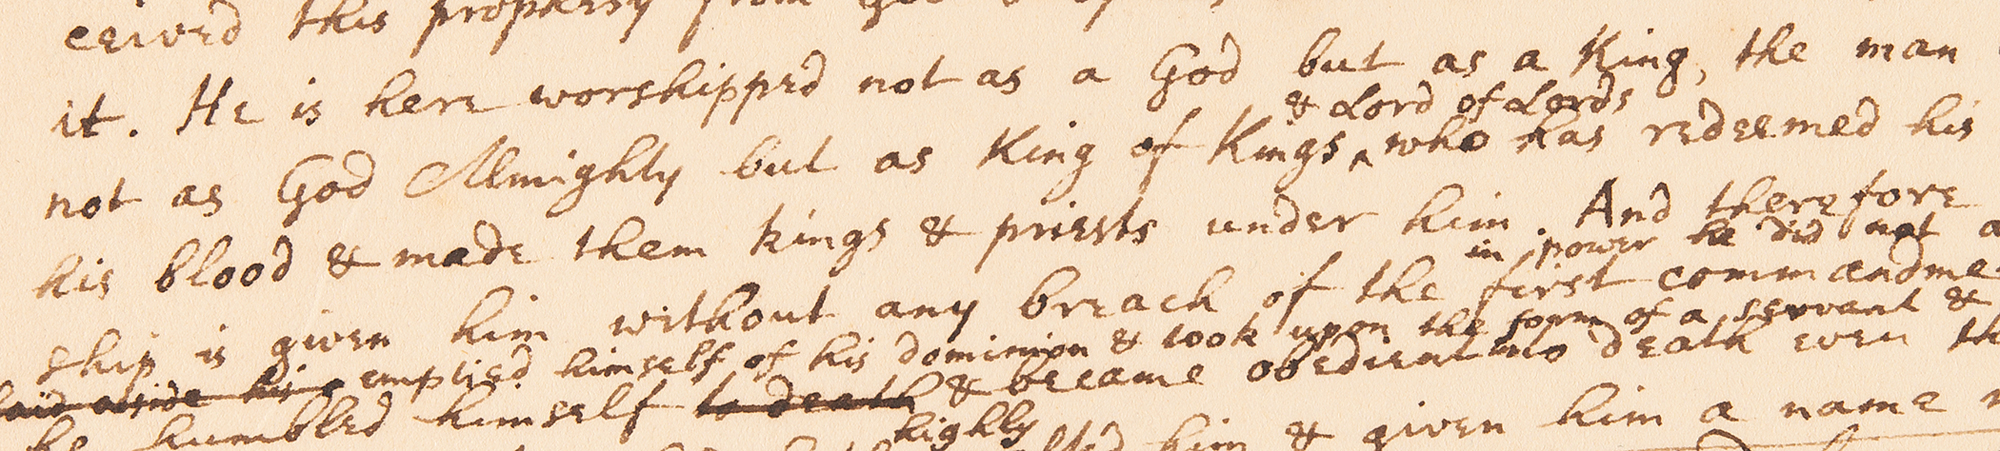 ceived this prophesy from God
it. He is here worshipped not as a God but as a King, the man
& Lord of Lords
not as God Almighty but as King of Kings ‸ who has redeemed his
his blood & made them kings & priests under him. And therefore
in power he did not
ship is given him without any breach of the first commandme
laid aside his emptied himself of his dominion & took upon the form of a servant &
he humbled himself to death & became obedient unto death even th
highly
him & given him a name